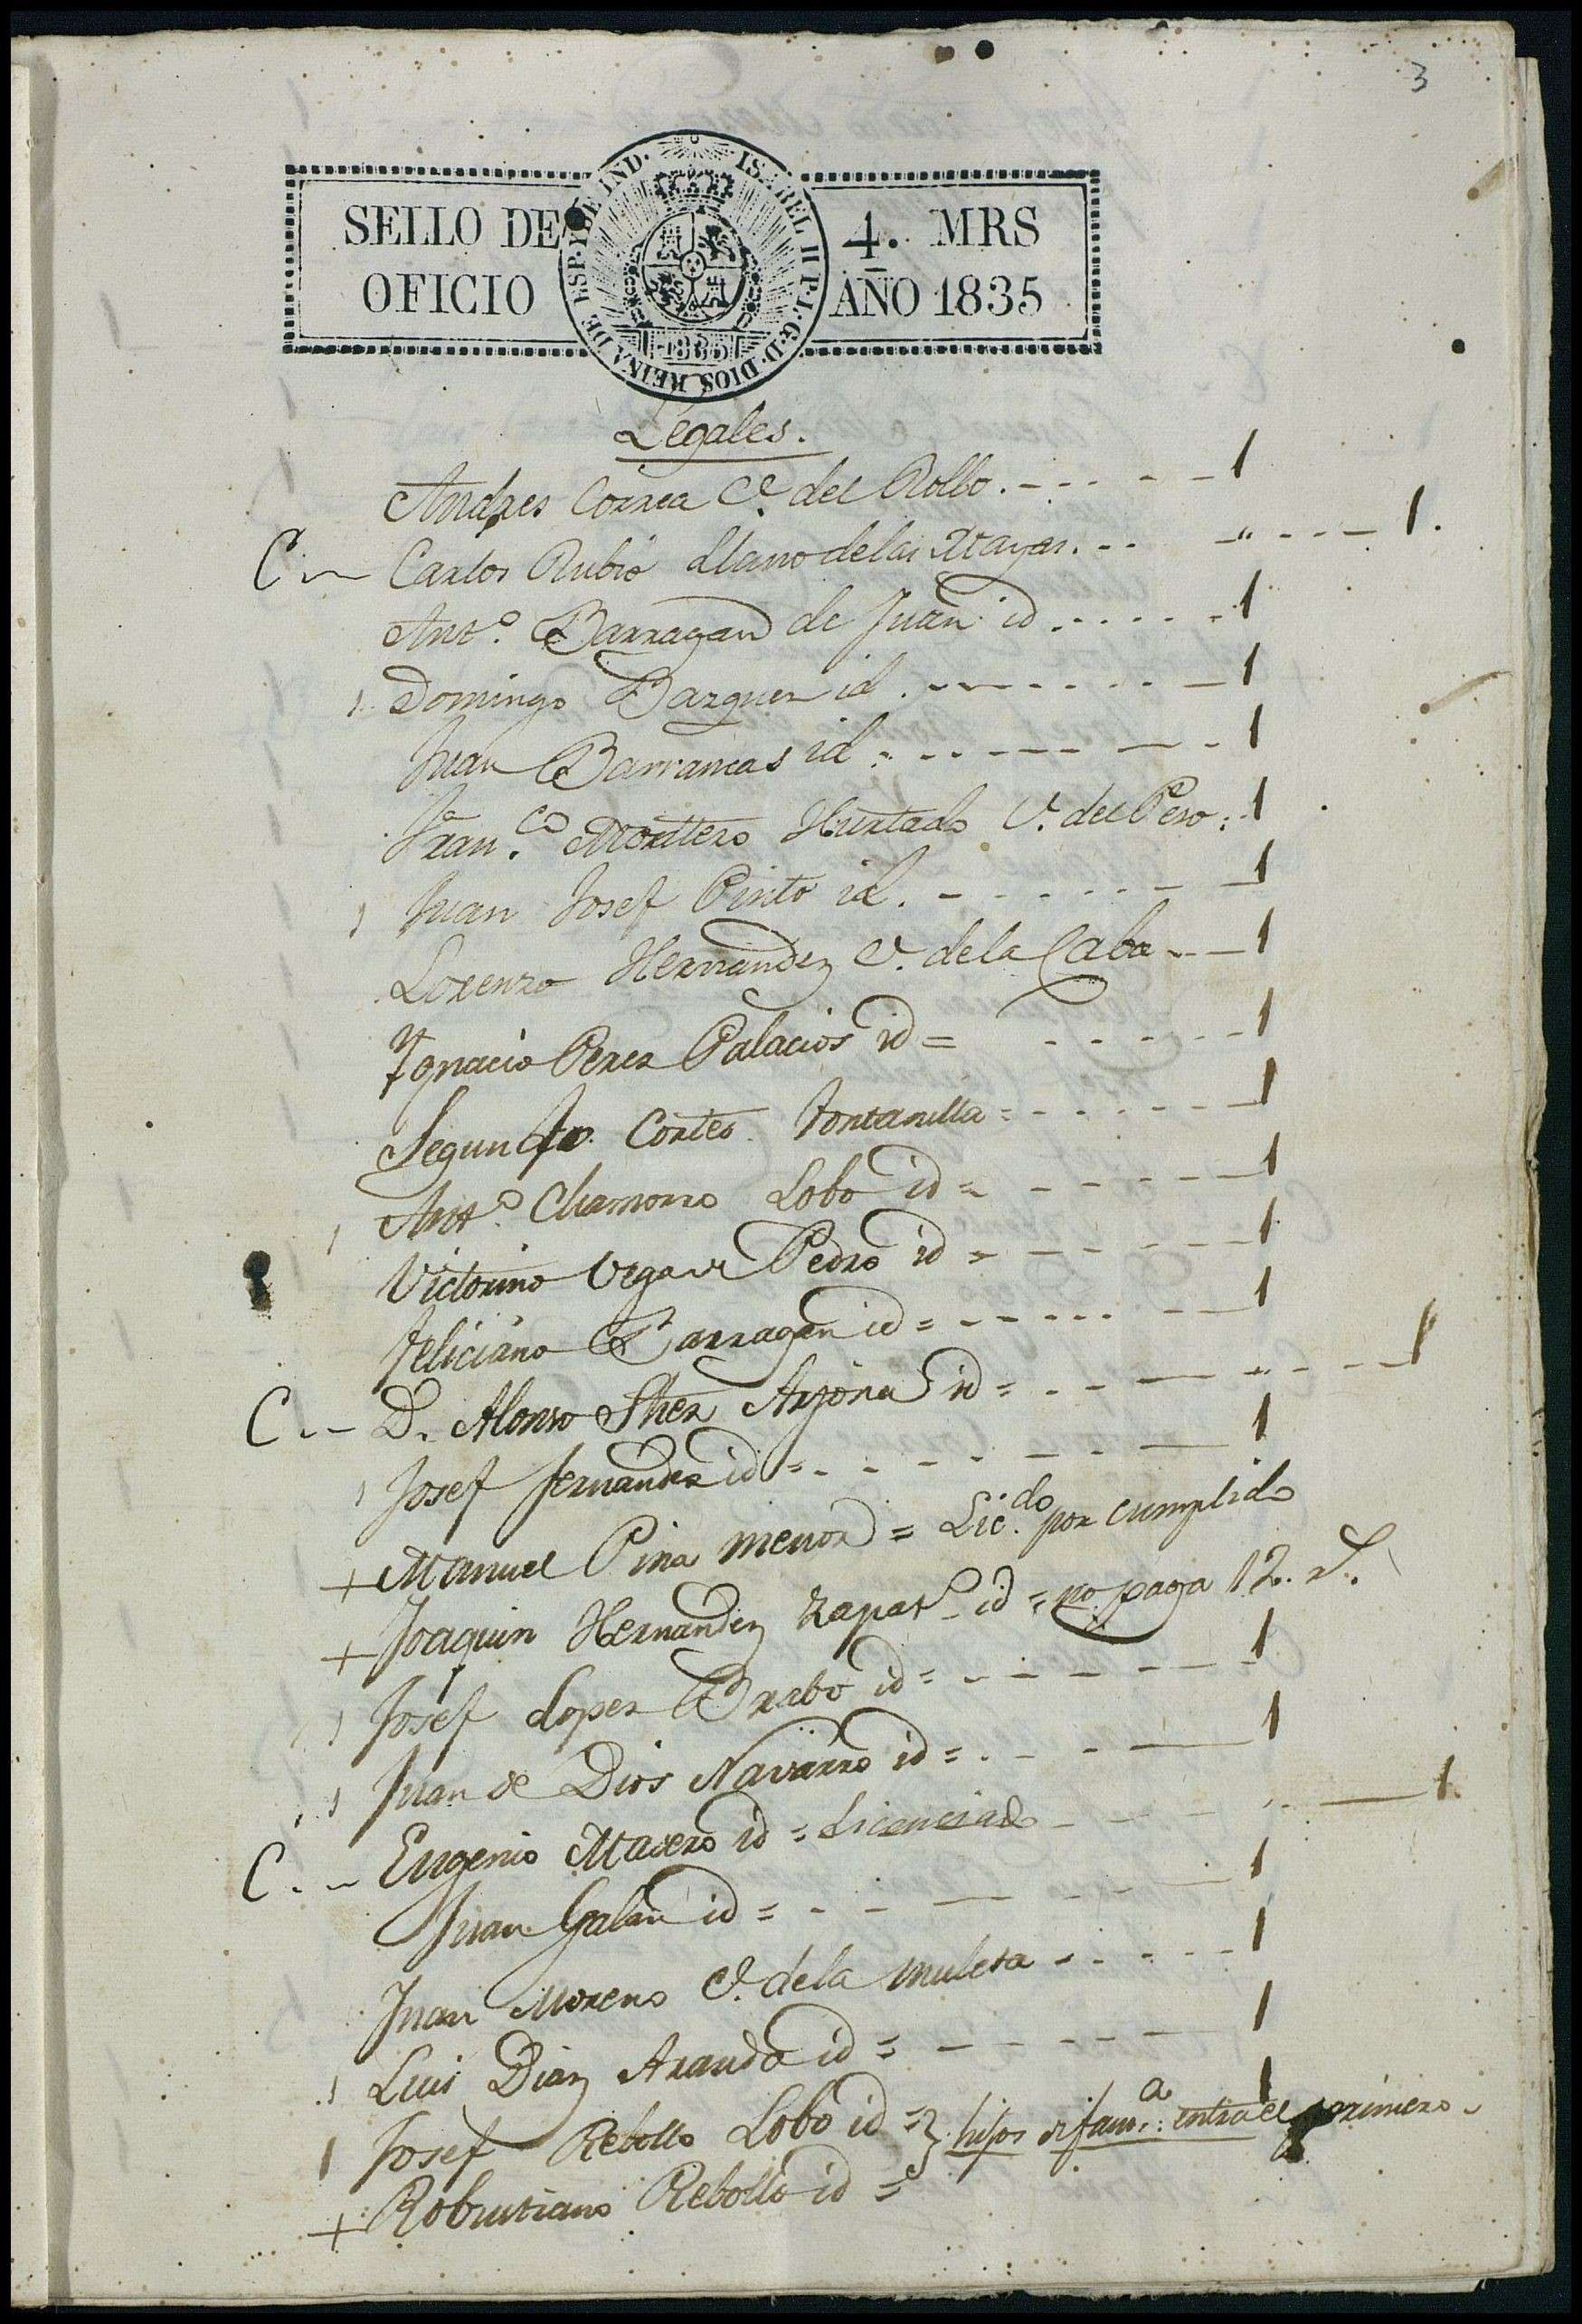 3
SELLO DE 4. MRS
OFICIO AÑO 1835
ISABEL II P.L.G.D. DIOS REINA DE ESP. Y DE IND.
1835
Legales.
Andres Correa C.e del Rollo. - - - - - 1
C - Carlos Rubio Llano de las - - - - - 1.
Ant.o Barragan de Juan id - - - - - 1
1 Domingo Bazquez id. - - - - - 1
Juan Barrancas id - - - - - 1
Fran.co Montero Hurtado C. del Peso: 1
1 Juan Josef Pinto id. - - - - - 1
Lorenzo Hernandez C. de la Caba - - 1
Ygnacio Perez Palacios id = - - - - - 1
Segundo Cortes Fontanilla = - - - - - 1
1 Ant.o Chamorro Lobo id = - - - - - 1
Victorino Vega de Pedro id = - - - - - 1
Feliciano Barragan id = - - - - - 1
C. - D. Alonso Shez Arjona id = - - - - - 1
1 Josef Fernandez id = - - - - - 1
+ Manuel Pina menor = Lic.do por cumplido
+ Joaquin Hernandez Zapat.o id = no paga 12.
1 Josef Lopez Brabo id = - - - - - 1
1 Juan de Dios Navarro id = - - - - 1
C. - Eugenio Masero id = Licenciado - - - - 1.
Juan Galan id = - - - - - 1
Juan Moreno C. de la muleta - - - - - 1
1 Luis Diaz Aranda id = - - - - - 1
1 Josef Rebollo Lobo id = } hijos de fam.a: entra el primero. 1
+ Robustiano Rebollo id =